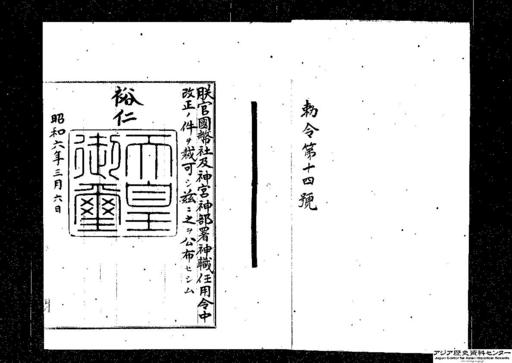 勅令第十四號
朕官國幣社及神宮神部署神職任用令中
改正ノ件ヲ裁可シ茲ニ之ヲ公布セシム
裕仁
天皇
御璽
昭和六年三月六日
アジア歴史資料センター
Japan Center for Asian Historical Records